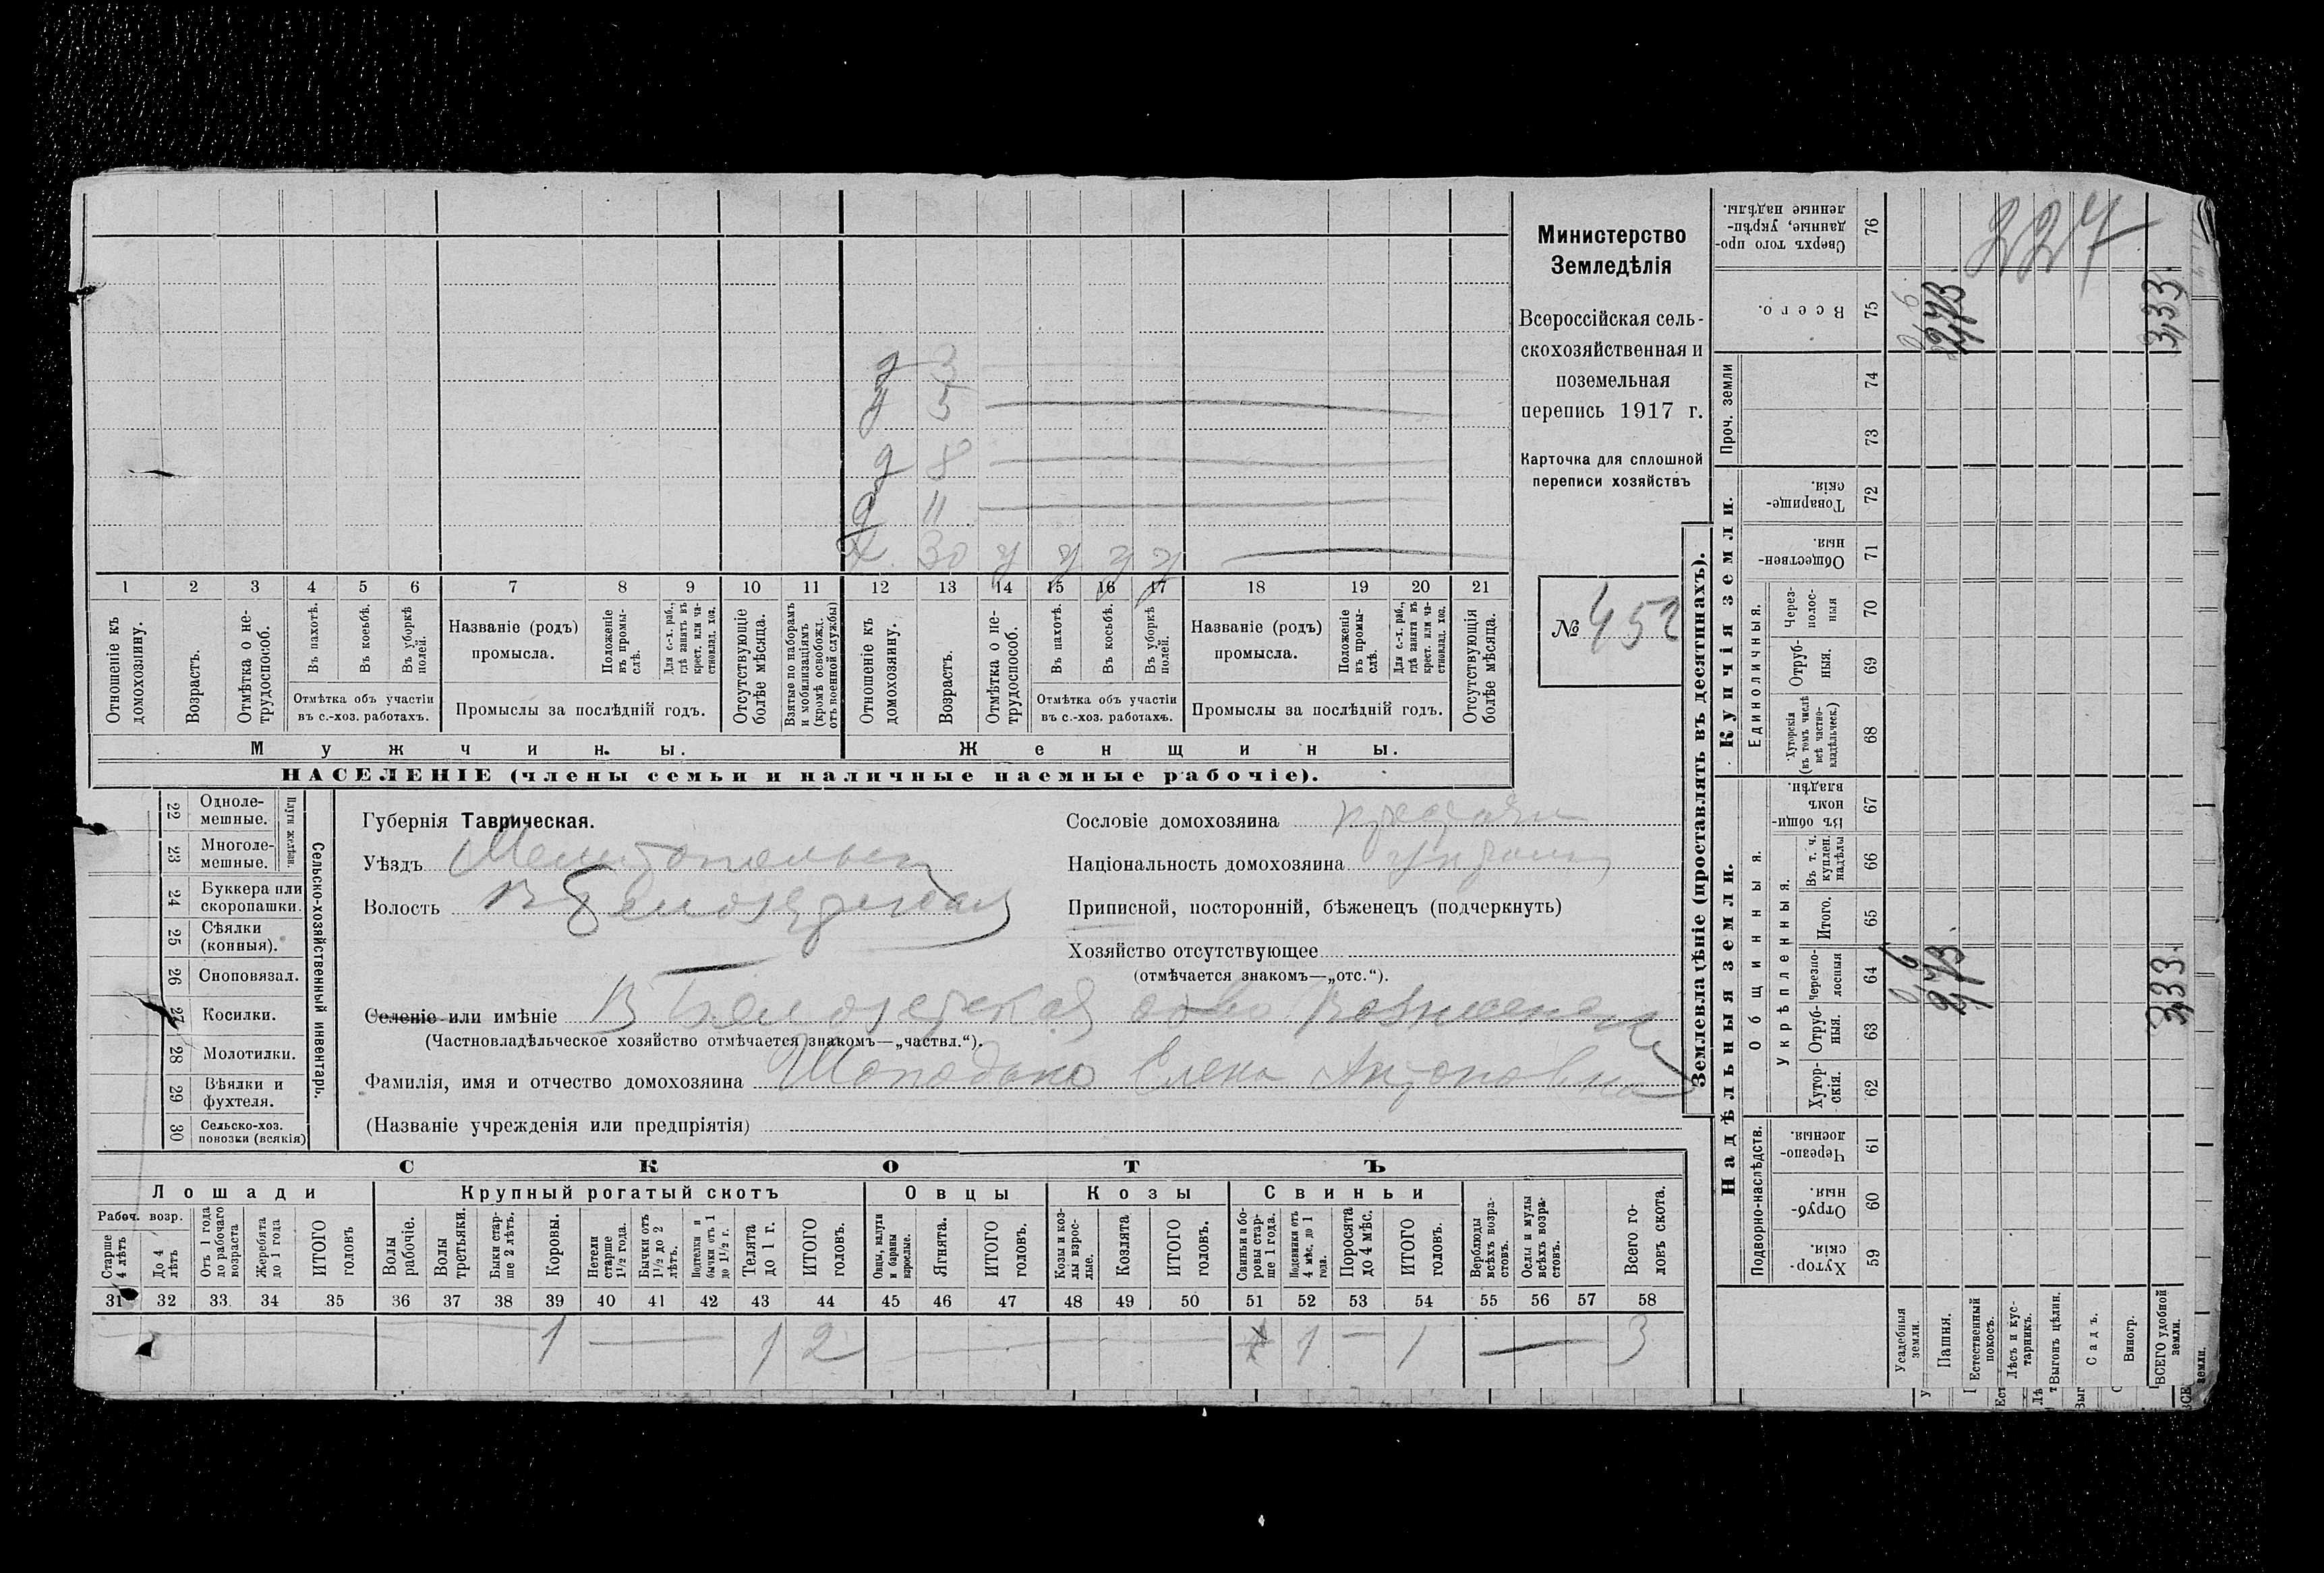 Министерство
Земледѣлія
Всероссійская сель-
скохозяйственная и
поземельная
перепись 1917 г.
Карточка для сплошной
переписи хозяйствъ
№ 452
227
д 3
д 5
д 8
д 11
х 30 у у у у
1 2 3 4 5 6 7 8 9 10 11 12 13 14 15 16 17 18 19 20 21
Отношеніе къ домохозяину.
Возрастъ.
Отмѣтка о не-трудоспособ.
Въ пахотѣ.
Въ косьбѣ.
Въ уборкѣ полей.
Отмѣтка объ участіи
въ с.-хоз. работахъ.
Названіе (родъ)
промысла.
Положеніе въ промы-слѣ.
Для с.-х. раб., гдѣ занятъ въ крест. или ча-стновлад. хоз.
Промыслы за послѣдній годъ.
Отсутствующіе болѣе мѣсяца.
Взятые по наборамъ и мобилизаціямъ (кромѣ освобожд. отъ военной службы)
Отношеніе къ домохозяину.
Возрастъ.
Отмѣтка о не-трудоспособ.
Въ пахотѣ.
Въ косьбѣ.
Въ уборкѣ полей.
Отмѣтка объ участіи
въ с.-хоз. работахъ.
Названіе (родъ)
промысла.
Положеніе въ промы-слѣ.
Для с.-х. раб., гдѣ занята въ крест. или ча-стновлад. хоз.
Промыслы за послѣдній годъ.
Отсутствующія болѣе мѣсяца.
Мужчины.
Женщины.
НАСЕЛЕНІЕ (члены семьи и наличные наемные рабочіе).
Сельско-хозяйственный инвентарь.
Плуги желѣзн.
22 Одноле-мешные.
23 Многоле-мешные.
24 Буккера или скоропашки.
25 Сѣялки (конныя).
26 Сноповязал.
27 Косилки.
28 Молотилки.
29 Вѣялки и фухтеля.
30 Сельско-хоз. повозки (всякія)
Губернія Таврическая.
Уѣздъ Мелитопольск
Волость В Белозерская
Селеніе или имѣніе В Белозерская
(Частновладѣльческое хозяйство отмѣчается знакомъ—„частвл.“).
Фамилія, имя и отчество домохозяина Шаповало Елена Антоновна
(Названіе учрежденія или предпріятія)
Сословіе домохозяина
Національность домохозяина
Приписной, посторонній, бѣженецъ (подчеркнуть)
Хозяйство отсутствующее
(отмѣчается знакомъ—„отс.“).
СКОТЪ
Лошади
Рабоч. возр.
Старше 4 лѣтъ
До 4 лѣтъ
Отъ 1 года до рабочаго возраста
Жеребята до 1 года
ИТОГО головъ
Крупный рогатый скотъ
Волы рабочіе.
Волы третьяки.
Быки стар-ше 2 лѣтъ.
Коровы.
Нетели старше 1½ года.
Бычки отъ 1½ до 2 лѣтъ.
Подтелки и бычки отъ 1 до 1½ г.
Телята до 1 г.
ИТОГО головъ.
Овцы
Овцы, валухи и бараны взрослые.
Ягнята.
ИТОГО головъ.
Козы
Козы и коз-лы взрос-лые.
Козлята
ИТОГО головъ.
Свиньи
Свиньи и бо-ровы стар-ше 1 года.
Подсвинки отъ 4 мѣс. до 1 года.
Поросята до 4 мѣс.
ИТОГО головъ.
Верблюды всѣхъ возра-стовъ.
Ослы и мулы всѣхъ возра-стовъ.
Всего го-ловъ скота.
31 32 33 34 35 36 37 38 39 40 41 42 43 44 45 46 47 48 49 50 51 52 53 54 55 56 57 58
1 1 2 1 1 3
Землевладѣніе (проставлять въ десятинахъ).
Надѣльныя земли.
Подворно-наслѣдств.
Хутор-скія. 59
Отруб-ныя. 60
Черезпо-лосныя. 61
Общинныя.
Укрѣпленныя.
Хутор-скія. 62
Отруб-ныя. 63
Черезпо-лосныя 64
Итого. 65
Въ т. ч. куплен. надѣлы 66
Въ общи-номъ владѣн. 67
Купчія земли.
Единоличныя.
Хуторскія (въ томъ числѣ всѣ частно-владѣльческ.) 68
Отруб-ныя. 69
Через-полос-ныя 70
Обществен-ныя 71
Товарище-скія. 72
Проч. земли
73 74
Всего. 75
Сверхъ того про-данные, укрѣп-ленные надѣлы. 76
Усадебныя земли.
Пашня.
Естественный покосъ.
Лѣсъ и кус-тарникъ.
Выгонъ цѣлин.
Садъ.
Виногр.
ВСЕГО удобной земли.
3,33
3,33